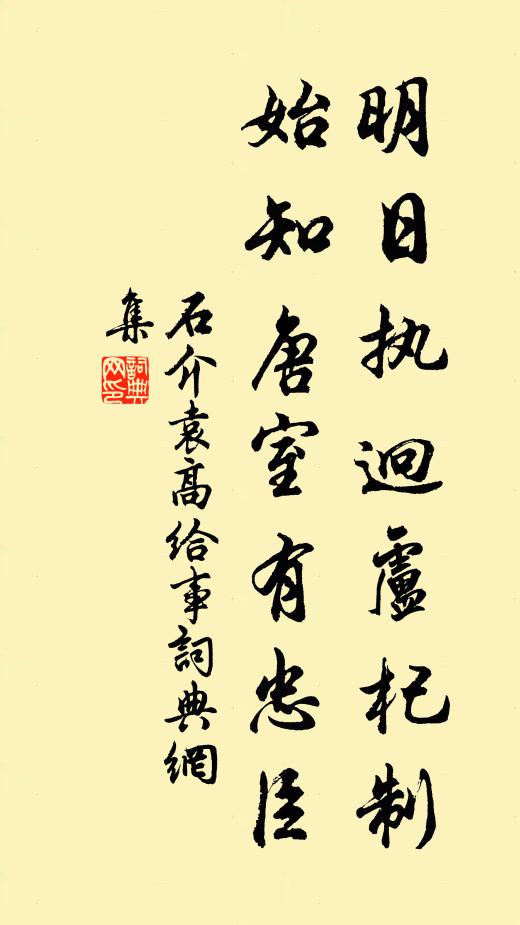 明日执迴盧杞制
始知唐室有忠臣
石介袁高给事詞典網
集
詞典网印